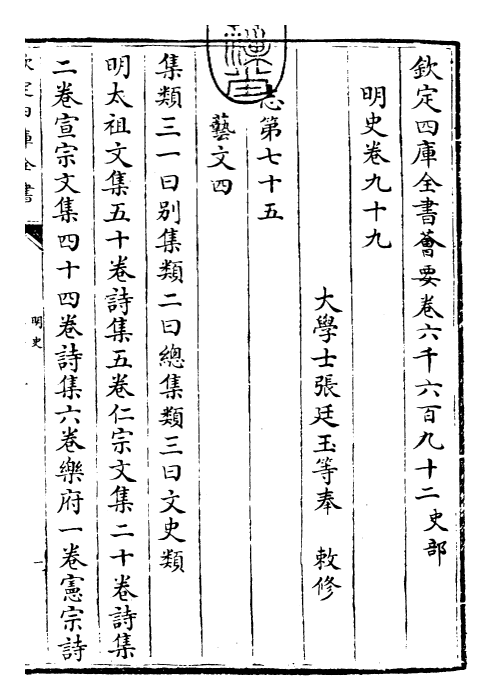 欽定四庫全書薈要卷六千六百九十二史部
明史卷九十九
大學士張廷玉等奉　敕修
志第七十五
藝文四
集類三一曰別集類二曰總集類三曰文史類
明太祖文集五十卷詩集五卷仁宗文集二十卷詩集
二卷宣宗文集四十四卷詩集六卷樂府一卷憲宗詩
欽定四庫全書
明史